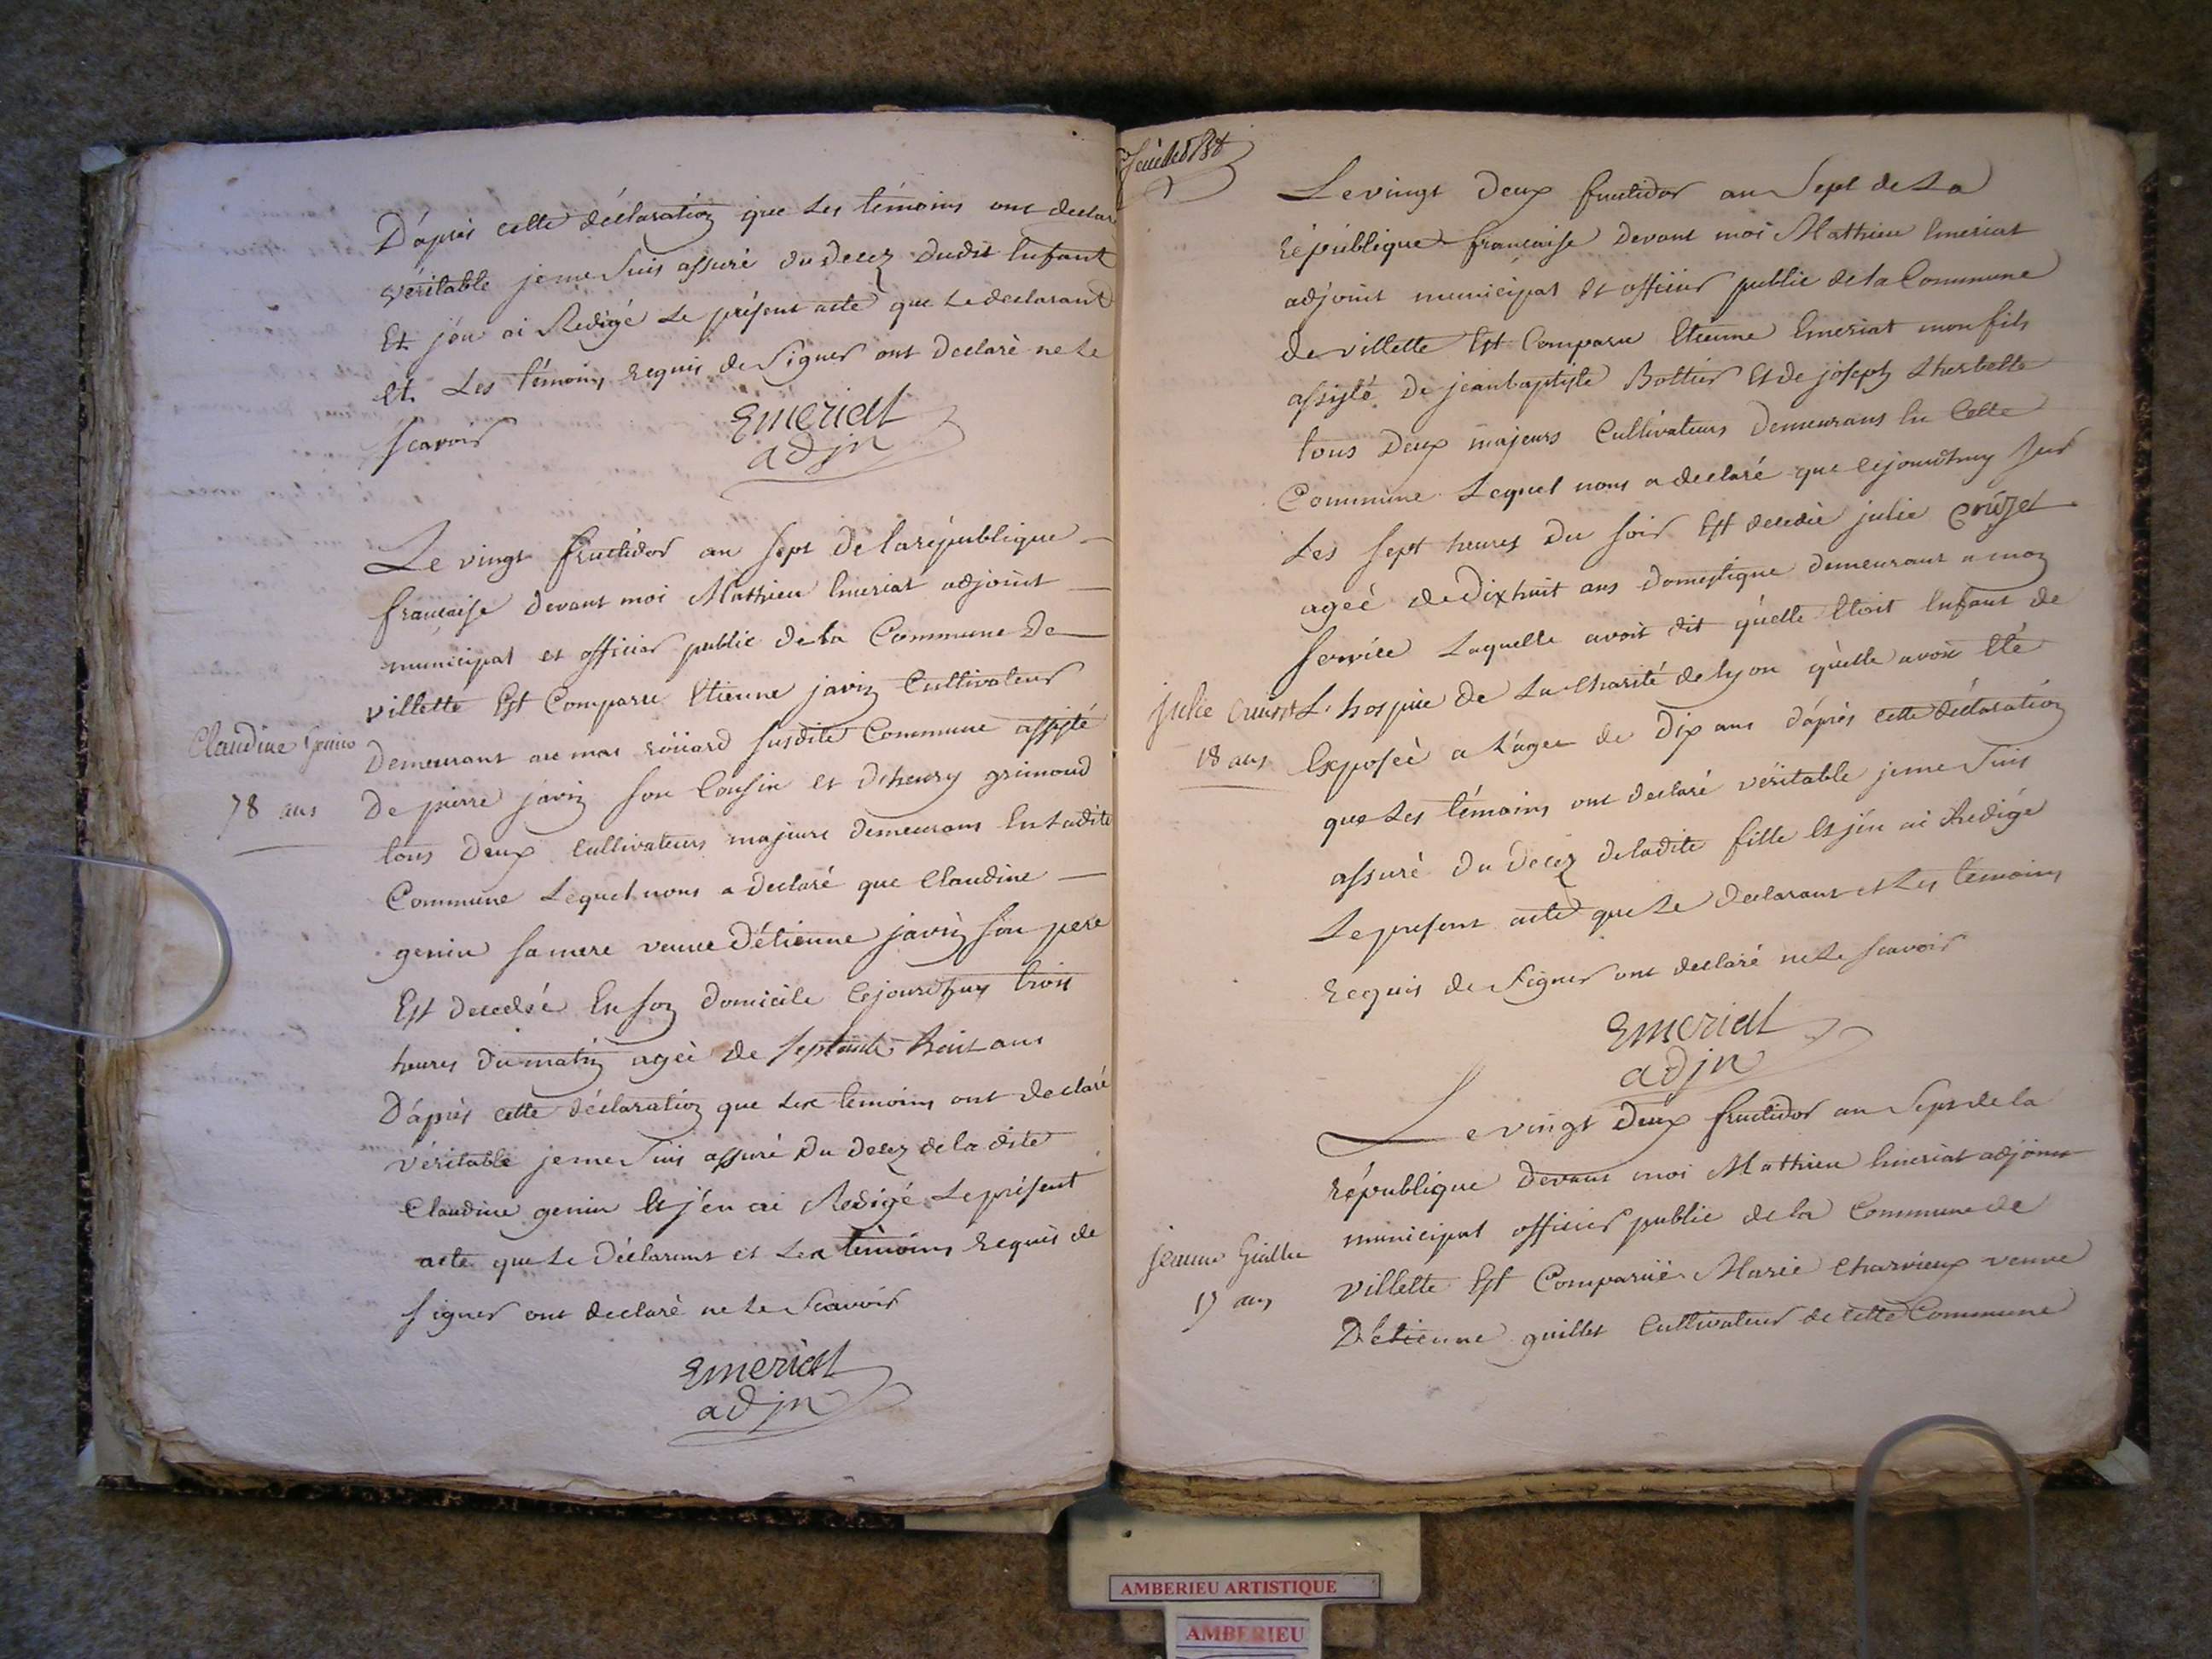 D'après cette déclaration que les témoins ont declaré
véritable je me suis assuré du decez dudit Enfant
Et j'en ai Redigé le présent acte que le declarant
et les témoins requis de signer ont declaré ne le
scavoir
Emeriat
adjn
Le vingt fructidor an sept de la république
française devant moi Mathieu Emeriat adjoint
municipal et officier public de la Commune de
villette Est Comparu Etienne javin Cultivateur
Claudine Genin
78 ans
demeurant au mas roüard susdite Commune assisté
de pierre javin son Cousin et d'henry grimoud
tous deux cultivateurs majeurs demeurans En ladite
Commune Lequel nous a declaré que Claudine
genin sa mere veuve d'étienne javin son pere
Est decedée En son domicile cejourd'huy trois
heures du matin ageé de septante huit ans
D'après cette déclaration que les temoins ont declaré
véritable je me suis assuré du decez de la dite
Claudine genin Et j'en ai Redigé le présent
acte que le déclarant et les témoins Requis de
signer ont declaré ne le Scavoir
Emeriat
adjn
Le vingt deux fructidor an Sept de La
République française devant moi Mathieu Emeriat
adjoint municipal Et officier public de la Commune
de villette Est Comparu Etienne Emeriat mon fils
assisté de jean baptiste Bottier Et de joseph Lherbette
tous deux majeurs Cultivateurs demeurans En Cette
Commune Lequel nous a declaré que cejourdhuy sur
Les sept heures du soir Est decedeé julie Crúzet
ageé de dixhuit ans domestique demeurant a mon
service Laquelle avoit dit qu'elle Etoit Enfant de
julie Cruzet
18 ans
L'hospice de La Charité de lyon qu'elle avoit Eté
Exposeé a L'age de dix ans d'après cette déclaration
que les témoins ont declaré véritable je me suis
assuré du decez de ladite fille Et j'en ai Redigé
Le present acte que le declarant et les temoins
Requis de signer ont declaré ne le scavoir
Emeriat
adjn
Le vingt deux fructidor an Sept de la
République devant moi Mathieu Emeriat adjoint
municipal officier public de la Commune de
jeanne
17 ans
villette Est Comparüe Marie Charvieux veuve
D'étienne guillet Cultivateur de cette Commune
AMBERIEU ARTISTIQUE
AMBERIEU